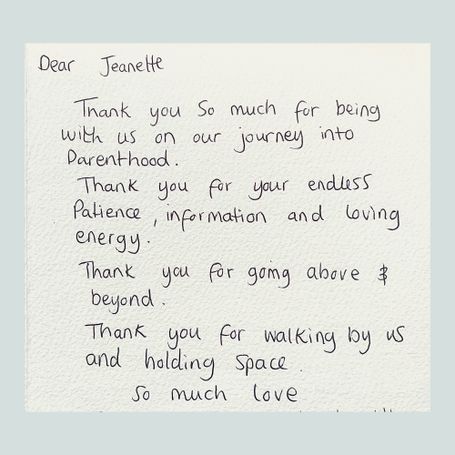 Dear Jeanette
Thank you So much for being
with us on our journey into
Parenthood.
Thank you for your endless
Patience, information and loving
energy.
Thank you for going above &
beyond.
Thank you for walking by us
and holding space.
So much love